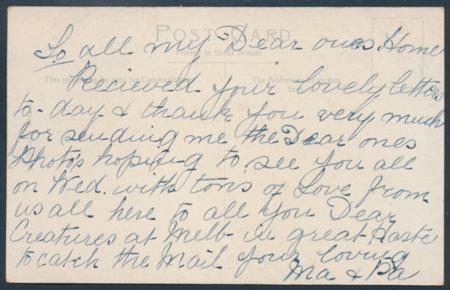 POST CARD
Printed in Great Britain
To all my Dear ones Home
Recieved your lovely letters
to-day & thank you very much
for sending me the Dear ones
Photos hopeing to see you all
on Wed. with tons of Love from
us all here to all you Dear
Creatures at Melb in great Haste
to catch the Mail your loving
Ma & Pa